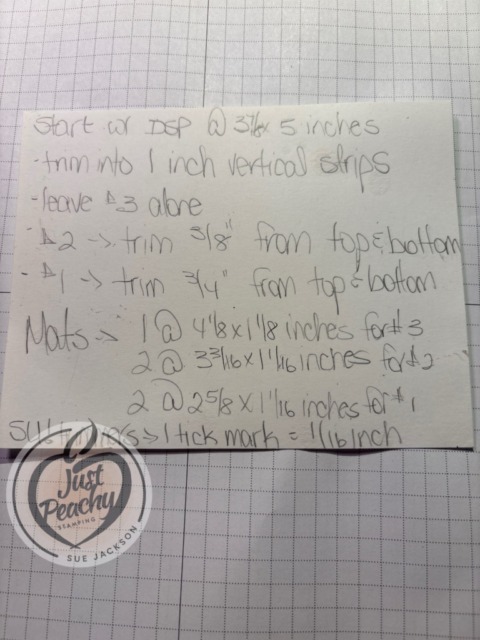 Start w/ DSP @ 3⅞ x 5 inches
- trim into 1 inch vertical strips
- leave #3 alone
- #2 -> trim 3/8" from top & bottom
- #1 -> trim 3/4" from top & bottom
Mats -> 1 @ 4 1/8 x 1 1/8 inches for #3
2 @ 3 3/16 x 1 1/16 inches for #2
2 @ 2 5/8 x 1 1/16 inches for #1
SU trimmers -> 1 tick mark = 1/16 inch
Just
Peachy
STAMPING
SUE JACKSON